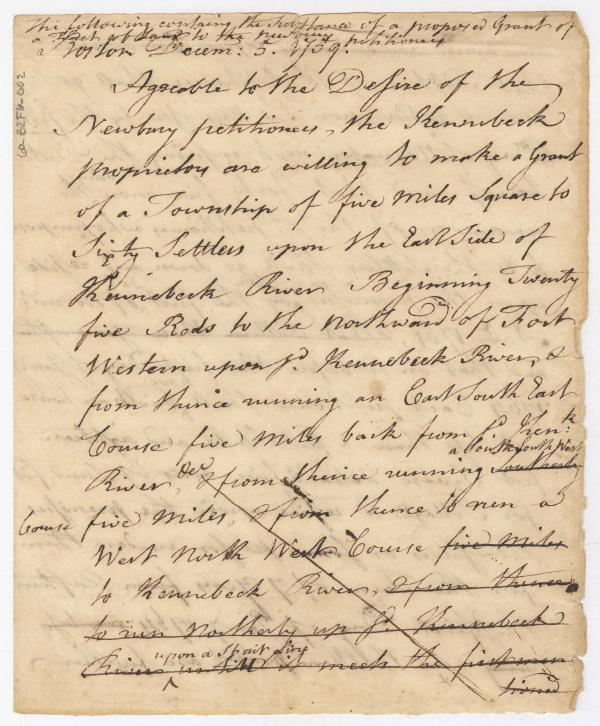 The following contains the Substance of a proposed Grant of
a Tract of Land to the Newbury petitioners
Boston Decem: 5. 1759.
Agreable to the Desire of the
Newbury petitioners, the Kennebeck
proprietors are willing to make a Grant
of a Township of five Miles Square to
Sixty Settlers upon the East Side of
Kennebeck River Beginning Twenty
five Rods to the Northward of Fort
Western upon sd. Kennebeck River, &
from thence running an East South East
Course five Miles back from sd. Kenk.
a South South West
River, & from thence running Southerly
Course five Miles, & from thence to run a
West North West Course five Miles
to Kennebeck River, & from thence
to run Northerly up sd. Kennebeck
upon a Strait Line
River untill it meets the first men
tioned
60-82F16-002